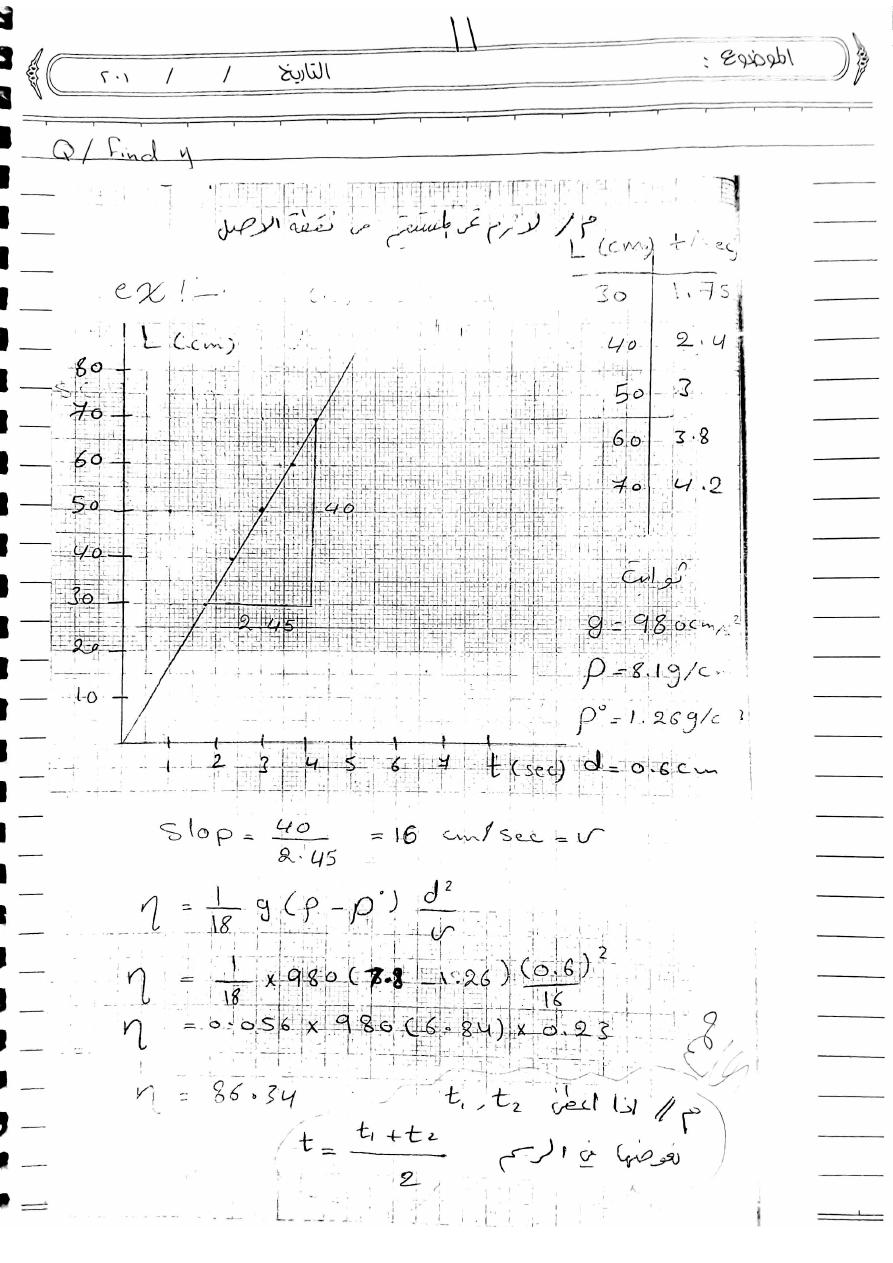 11
الموضوع :
التاريخ / / ٢٠١
Q/ Find η
م/ لازم تمر المستقيم من نقطة الاصل
L (cm) t/sec
ex :-
30 1.75
40 2.4
50 3
60 3.8
70 4.2
L (cm)
80
70
60
50
40
30
20
10
40
2.45
1 2 3 4 5 6 7 t (sec)
ثوابت
g = 980cm/s²
ρ = 8.1g/c
ρ° = 1.26g/c 3
d = 0.6cm
Slop = 40/2.45 = 16 cm/sec = v
η = 1/18 g (ρ - ρ°) d²/v
η = 1/18 × 980 ( 8.8 - 1.26) (0.6)²/16
η = 0.056 × 980 (6.84) × 0.23
η = 86.34
م // اذا اعطى t₁, t₂
نعوضها في الرسم
t = t₁ + t₂ / 2